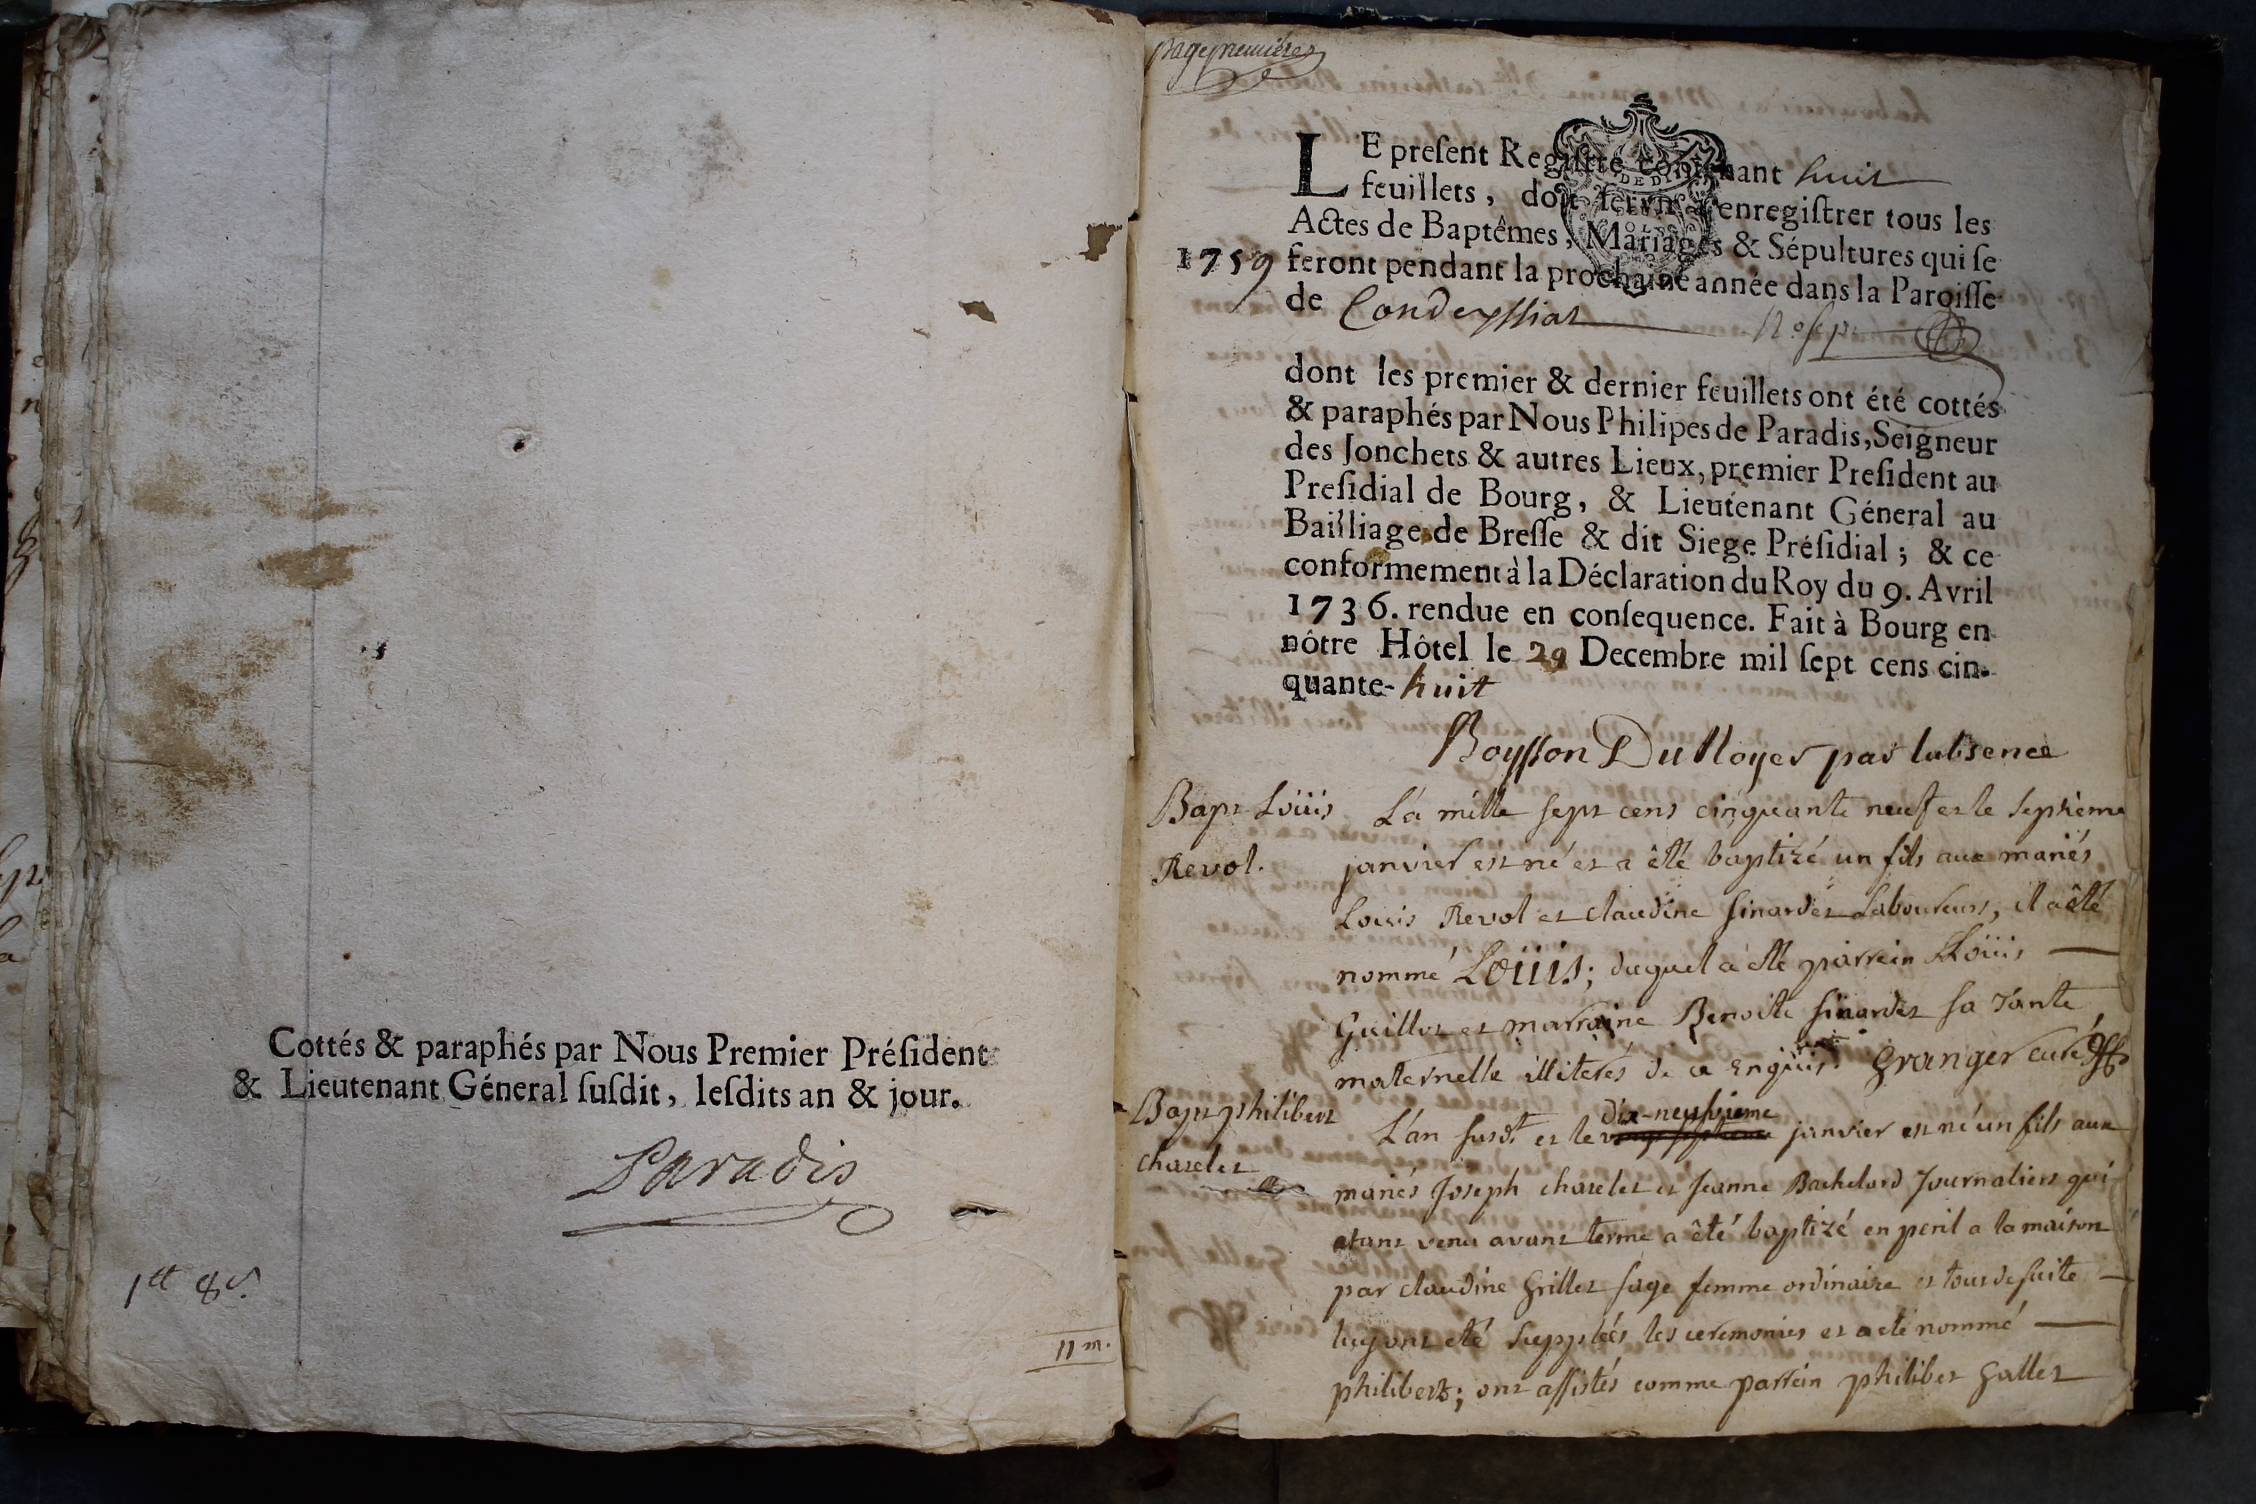 Cottés & paraphés par Nous Premier Préſident
& Lieutenant Géneral ſuſdit, leſdits an & jour.
Paradis
1tt 8s.
11 m.
page premiere
LE preſent Regiſtre contenant huit
feuillets, doit ſervir à enregiſtrer tous les
Actes de Baptêmes, Mariages & Sépultures qui ſe
1759 feront pendant la prochaine année dans la Paroiſſe
de Condeyssiat
dont les premier & dernier feuillets ont été cottés
& paraphés par Nous Philipes de Paradis, Seigneur
des Jonchets & autres Lieux, premier Preſident au
Preſidial de Bourg, & Lieutenant Géneral au
Bailliage de Breſſe & dit Siege Préſidial ; & ce
conformement à la Déclaration du Roy du 9. Avril
1736. rendue en conſequence. Fait à Bourg en
nôtre Hôtel le 29 Decembre mil ſept cens cin-
quante-huit
Boysson Du Noyer par labsence
Bapt Loüis
Revol.
L'á mille sept cens cinquante neuf et le septieme
janvier est né et a êté baptizé un fils aux mariés
Loüis Revol et claudine sinardet Laboureurs, il a êté
nommé Loüis; duquel a êté parrein Loüis
Guillot et marraine Benoite sinardet sa Tante
maternelle illiterés de ce enquis. Granger curé
Bapt philibert
chatelet
L'an susd.t et le dix-neufvieme janvier est né un fils aux
mariés Joseph chatelet et Jeanne Bachelard Journaliers qui
etant venu avant terme a êté baptizé en peril a la maison
par claudine Grillet sage femme ordinaire et tout de suite
luy ont eté supplées les ceremonies et a eté nommé
philibert; ont assistés comme parrein philibet Gallet